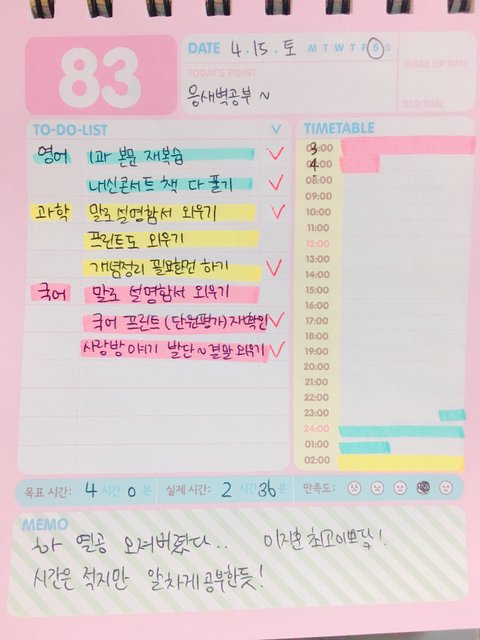 83
DATE 4.15.토 M T W T F S S
WAKE UP TIME
TODAY'S POINT
음새벽공부~
BED TIME
TO-DO-LIST
TIMETABLE
영어 1과 본문 재복습
내신콘서트 책 다 풀기
과학 말로 설명함서 외우기
프린트도 외우기
개념정리 필요한건 하기
국어 말로 설명함서 외우기
국어 프린트(단원평가)재확인
사랑방 얘기 발단~결말 외우기
3
4
08:00
09:00
10:00
11:00
12:00
13:00
14:00
15:00
16:00
17:00
18:00
19:00
20:00
21:00
22:00
23:00
24:00
01:00
02:00
목표 시간: 4 시간 0 분 실제 시간: 2 시간 36 분 만족도:
MEMO
하 열공 오져버렸다.. 이지훈 최고이쁘닿!
시간은 적지만 알차게 공부한듯!